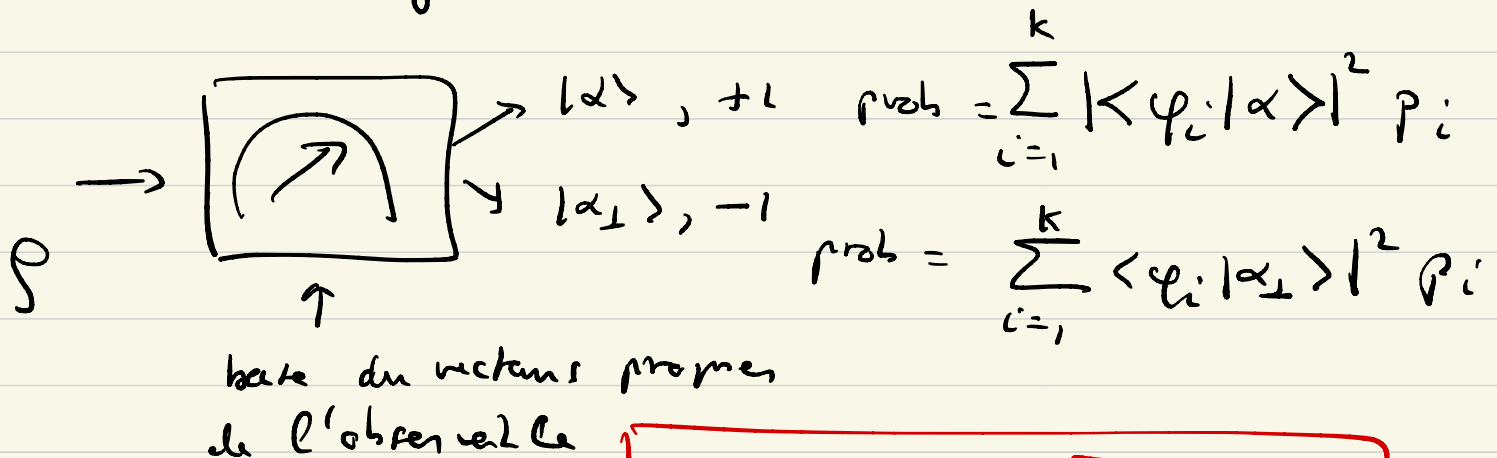 |α⟩, +1 prob = \sum_{i=1}^{k} |<φ_i|α>|^2 p_i
|α_⊥⟩, -1 prob = \sum_{i=1}^{k} <φ_i|α_⊥>|^2 p_i
ρ
base des vecteurs propres
de l'observable